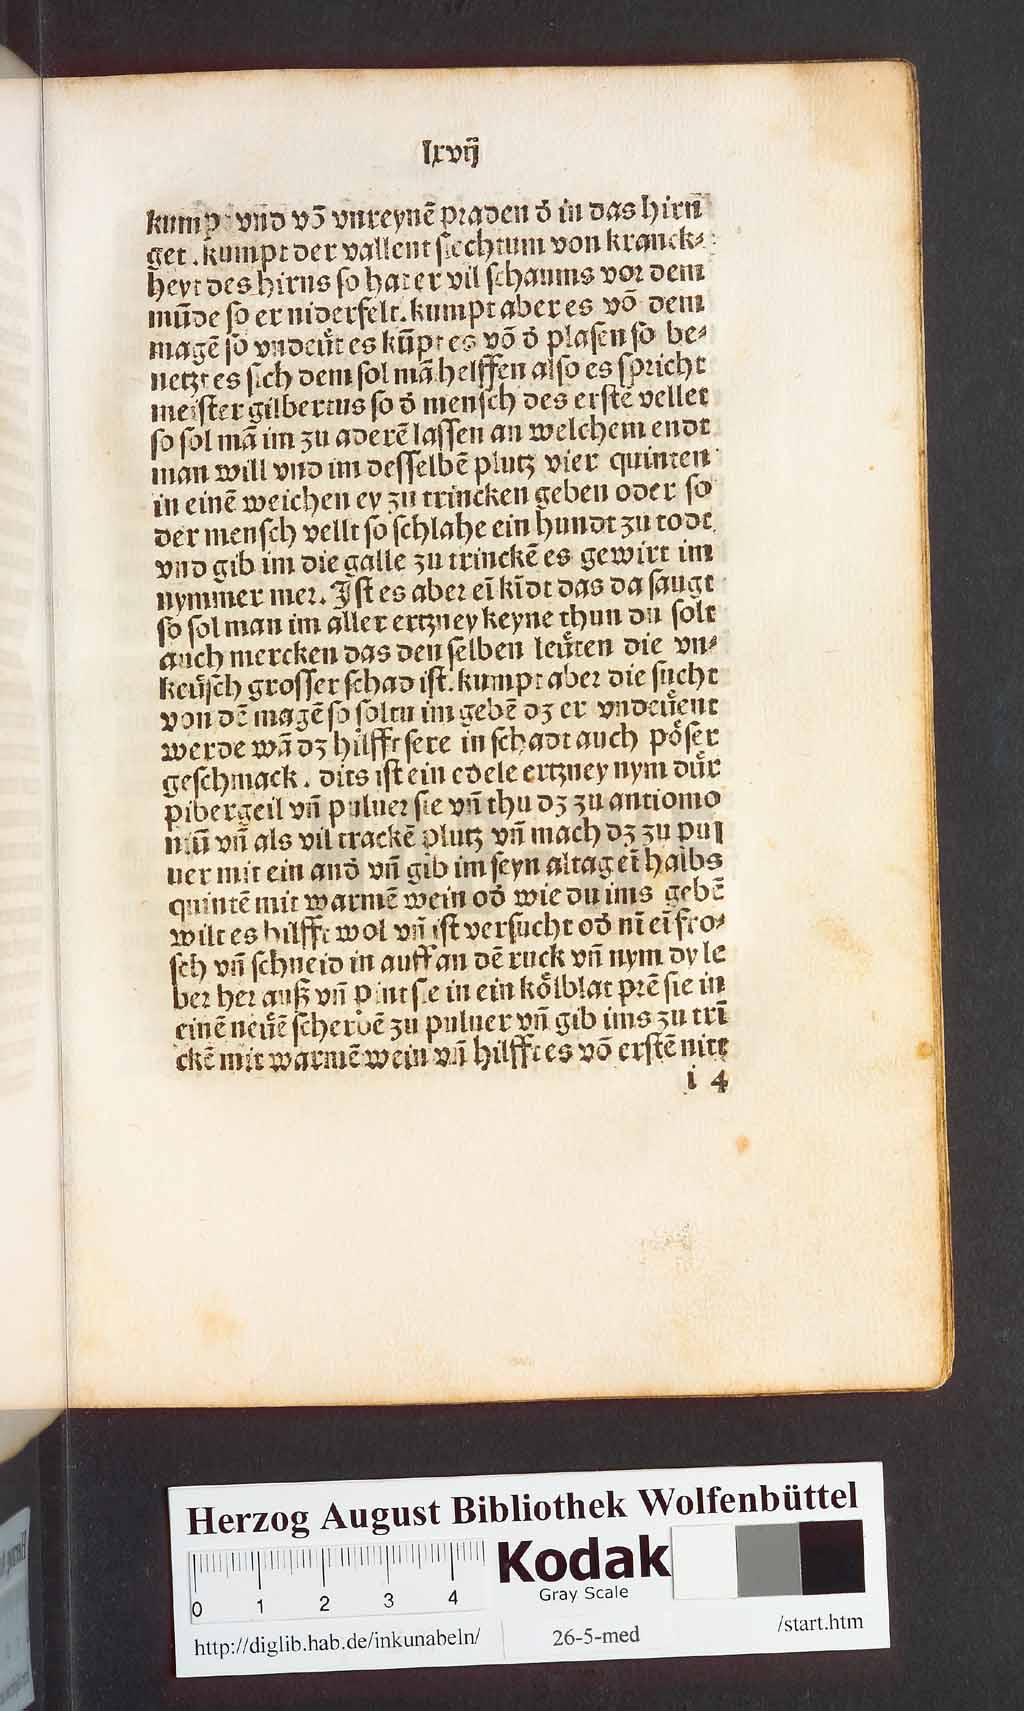 lxvij
kumpt vnd vō vnreynē praden ď in das hirn̄
get. kumpt der vallent siechtum von kranck⸗
heyt des hirns so hat er vil schaums vor dem
mūde so er niderfelt. kumpt aber es vō dem
magē so vndeuͤt es kūpt es vō ď plasen so be⸗
netzt es sich dem sol mā helffen also es spricht
meister gilbertus so ď mensch des erstē vellet
so sol mā im zu aderē lassen an welchem endt
man will vnd im desselbē plutz vier quinten
in einē weichen ey zu trincken geben oder so
der mensch vellt so schlahe ein hundt zu todt
vnd gib im die galle zu trinckē es gewirt im
nymmer mer. Ist es aber eī kīdt das da saugt
so sol man im aller ertzney keyne thun du solt
auch mercken das den selben leuͤten die vn⸗
keuͤsch grosser schad ist. kumpt aber die sucht
von dē magē so soltu im gebē dz er vndeuͤent
werde wā dz hilfft sere in schadt auch poͤser
geschmack. dits ist ein edele ertzney nym duͤr
pibergeil vn̄ puluer sie vn̄ thu dz zu antiomo
niū vn̄ als vil trackē plutz vn̄ mach dz zu pul
uer mit ein anď vn̄ gib im seyn altag eī halbs
quintē mit warmē wein oď wie du ims gebē
wilt es hilfft wol vn̄ ist versucht oď nī eī fro⸗
sch vn̄ schneid in auff an dē ruck vn̄ nym dy le
ber her auß vn̄ pint sie in ein koͤlblat prē sie in
einē neuͤē scherbē zu puluer vn̄ gib ims zu trī
ckē mit warmē wein vn̄ hilfft es vō erstē nitt
i 4
Herzog August Bibliothek Wolfenbüttel
Kodak
Gray Scale
0 1 2 3 4
http://diglib.hab.de/inkunabeln/ 26-5-med /start.htm